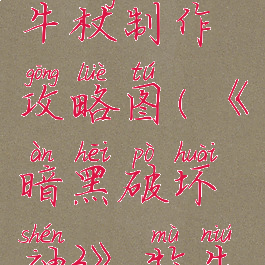 牛杖制作
gōng lüè tú
攻略图(《
àn hēi pò huài
暗黑破坏
shén mù niú
神》牧牛